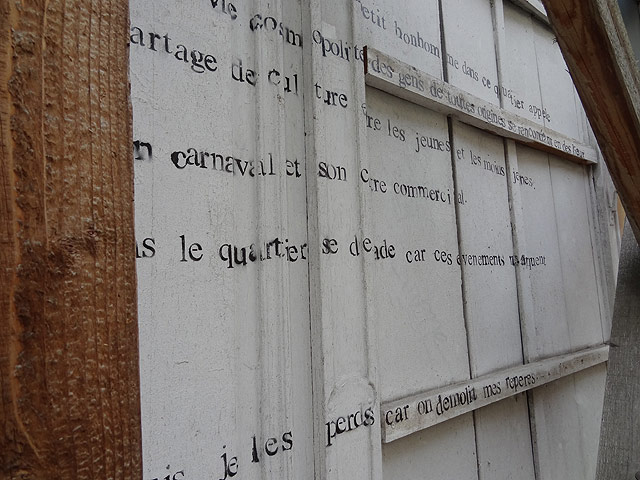 Petit bonhomme dans ce quartier appele
vie cosmopolite des gens de toutes origines se rencontrent en des
artage de culture re les jeunes et les moins jeunes.
n carnaval et son c re commercial.
is le quartier se de ade car ces evenements
is je les perds car on demolit mes reperes